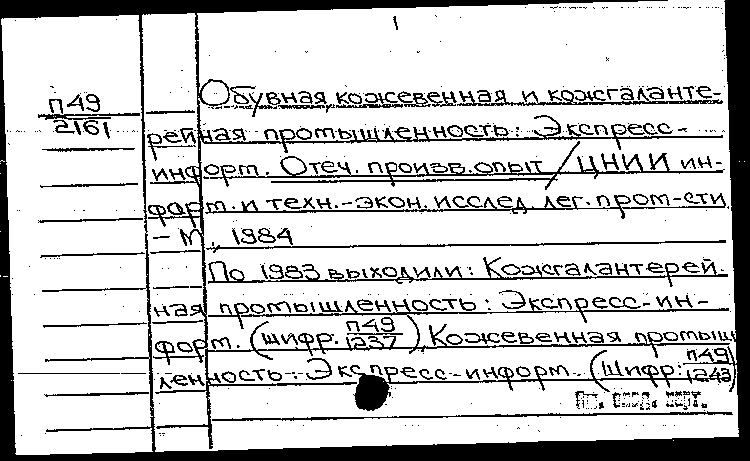 1
П49
2161
Обувная, кожевенная и кожгаланте-
рейная промышленность: Экспресс-
информ. Отеч. произв. опыт / ЦНИИ ин-
форм. и техн.-экон. исслед. лег. пром-сти
- М., 1984
По 1983 выходили: Кожгалантерей-
ная промышленность: Экспресс-ин-
форм. (шифр. П49/1237), Кожевенная промыш
ленность: Экспресс-информ. (Шифр: П49/1243)